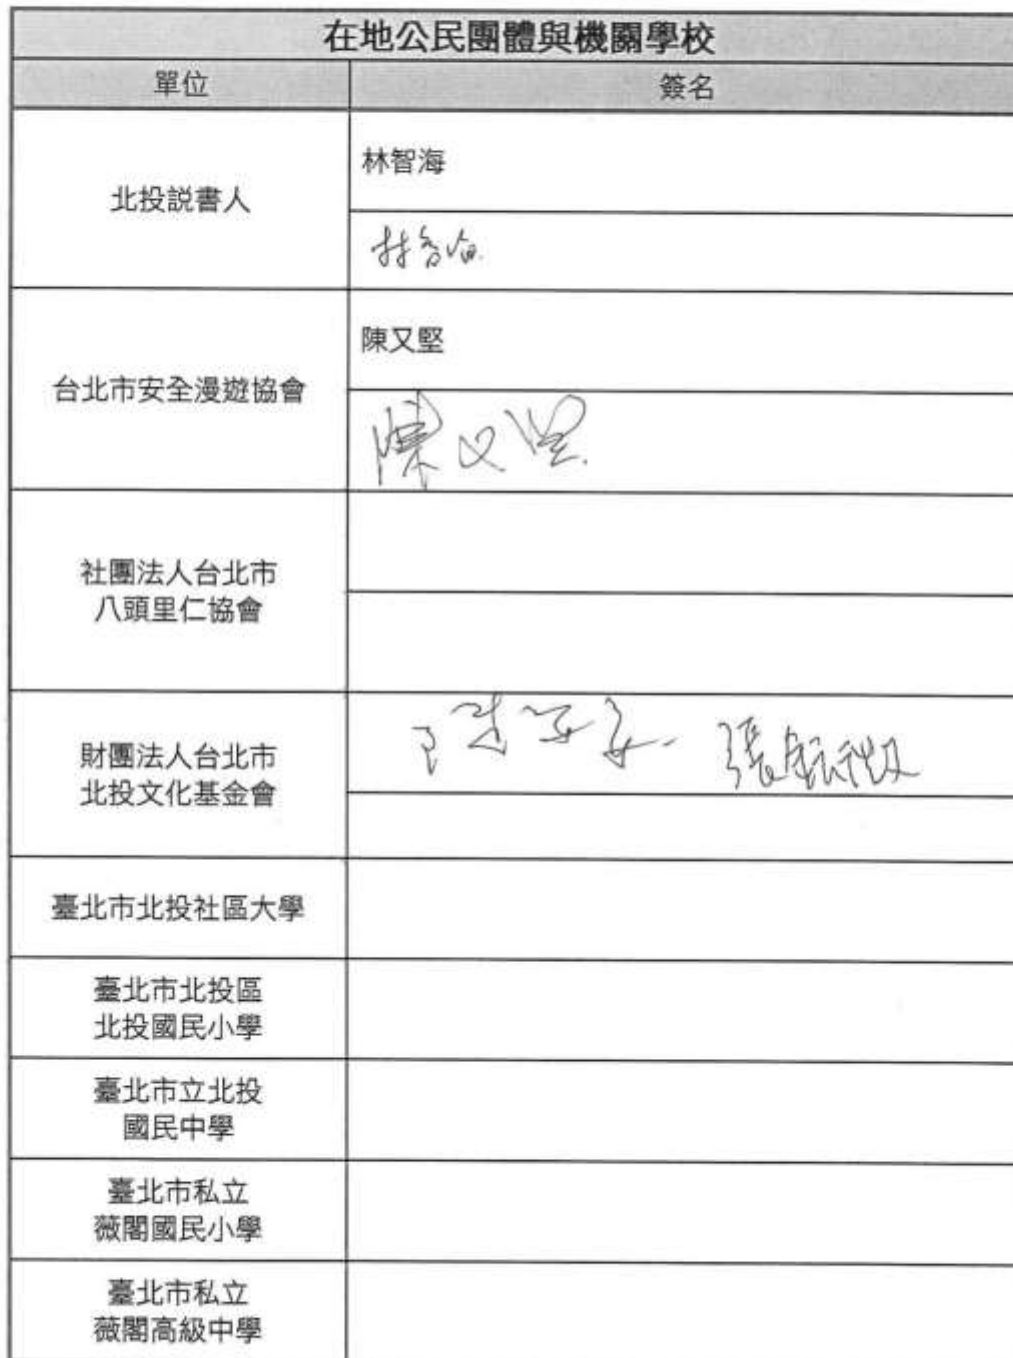 在地公民團體與機關學校
單位 簽名
北投説書人
林智海
林智海
台北市安全漫遊協會
陳又堅
陳又堅
社團法人台北市
八頭里仁協會
財團法人台北市
北投文化基金會
臺北市北投社區大學
臺北市北投區
北投國民小學
臺北市立北投
國民中學
臺北市私立
薇閣國民小學
臺北市私立
薇閣高級中學